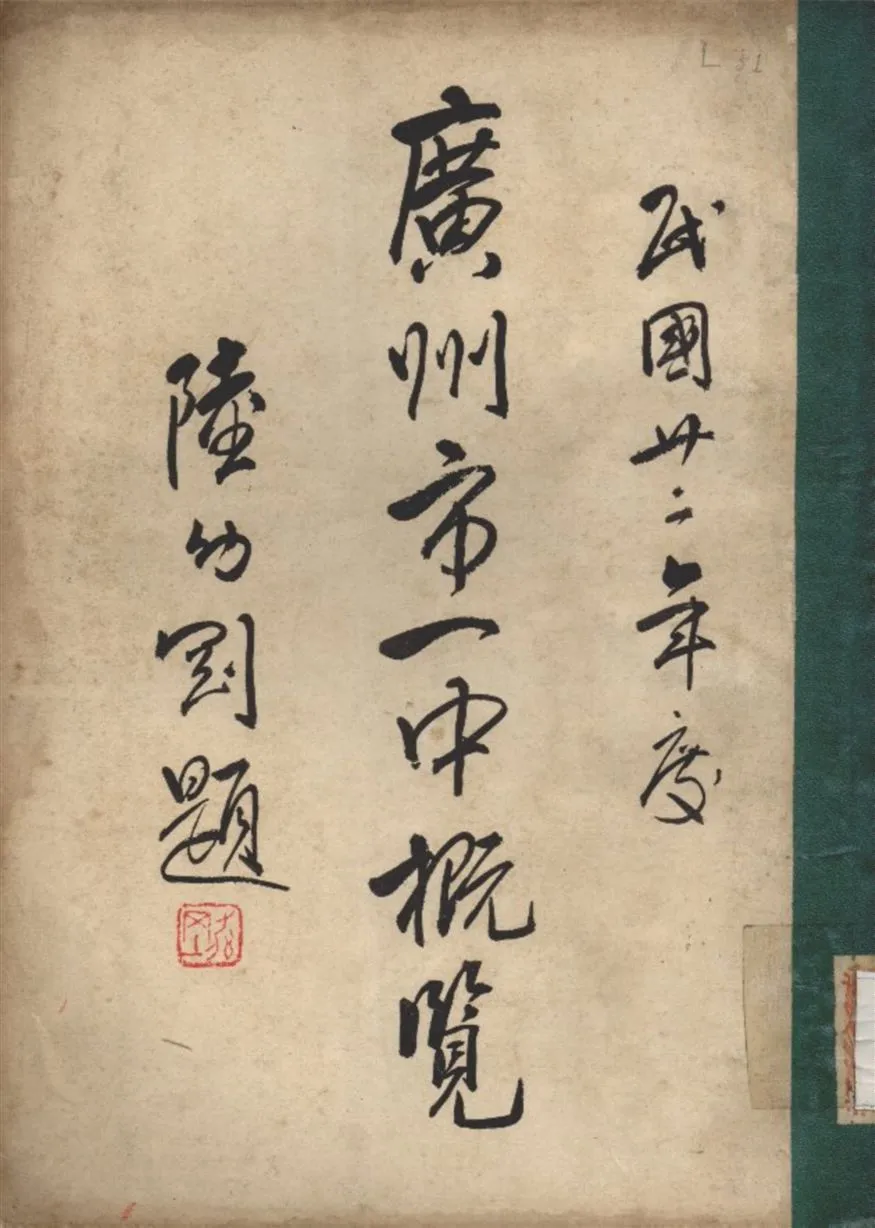 民國廿二年度
廣州市一中概覽
陸幼剛題